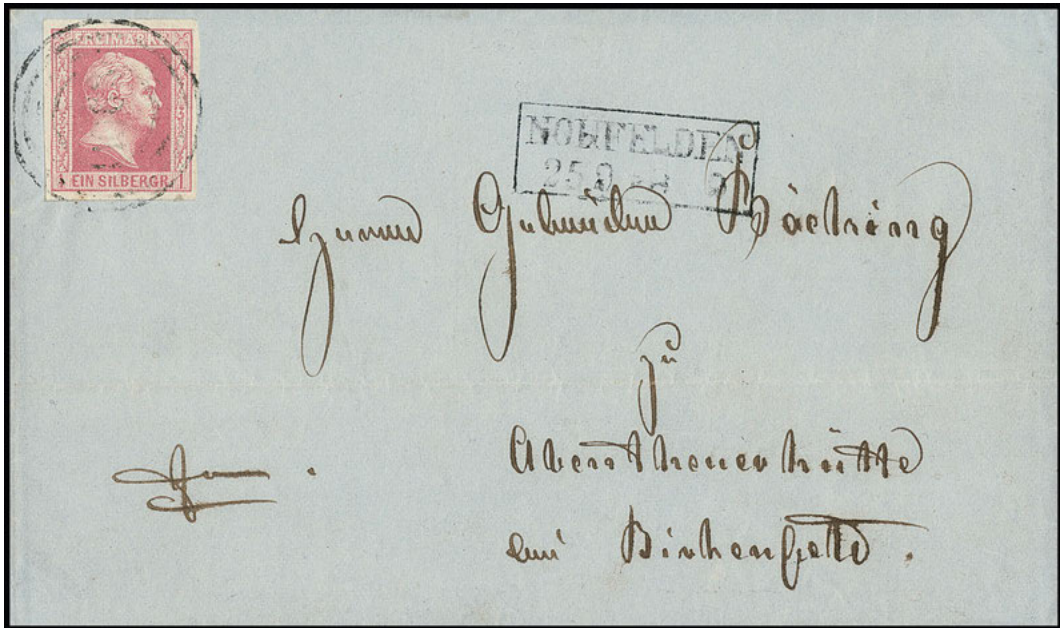 FREIMARKE
EIN SILBERGR. 1
NOHFELDEN
25 9
Herren Gebrüder Böcking
zu
Abentheuerhütte
bei Birkenfeld.